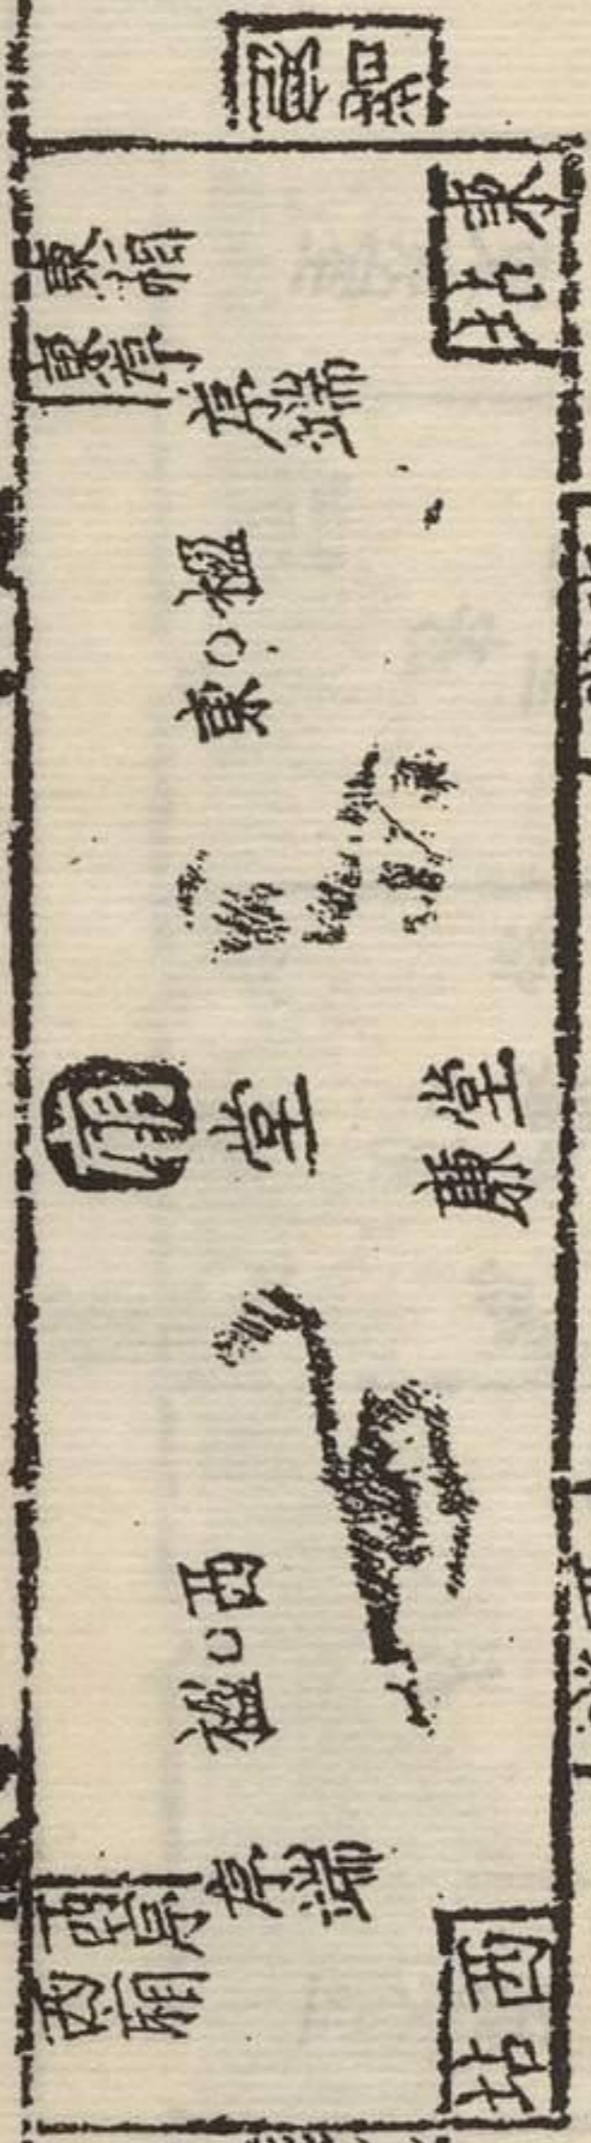 東坫
東廂
東序
序端
東楹
堂
堂廉
西楹
序端
西序
西廂
西坫